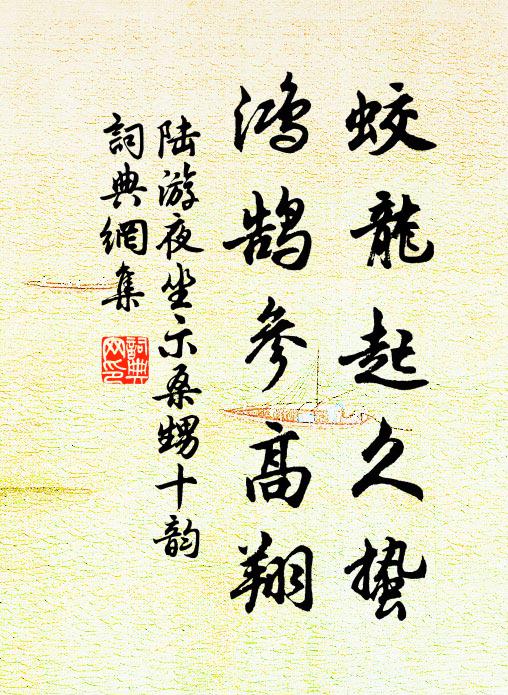 蛟龍起久蟄
鴻鵠參高翔
陸游夜坐示桑甥十韵
詞典網集
詞典网印